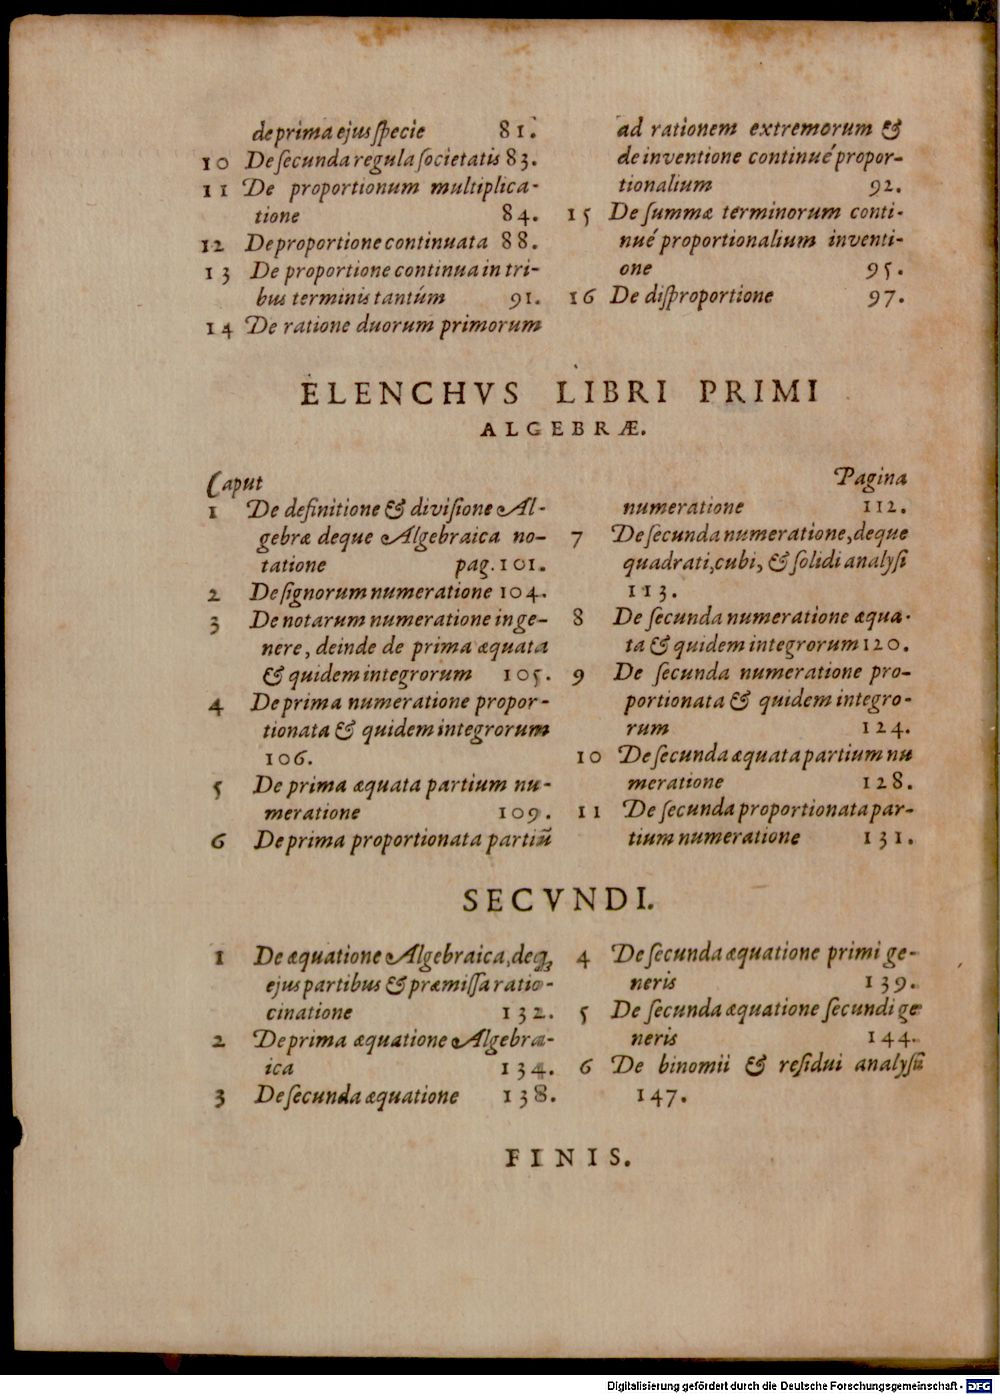 de prima ejus specie 81.
10 De secunda regula societatis 83.
11 De proportionum multiplica-
tione 84.
12 De proportione continuata 88.
13 De proportione continua in tri-
bus terminis tantúm 91.
14 De ratione duorum primorum
ad rationem extremorum &
de inventione continué propor-
tionalium 92.
15 De summæ terminorum conti-
nué proportionalium inventi-
one 95.
16 De disproportione 97.
ELENCHVS LIBRI PRIMI
ALGEBRÆ.
Caput
1 De definitione & divisione Al-
gebræ deque Algebraica no-
tatione pag. 101.
2 De signorum numeratione 104.
3 De notarum numeratione in ge-
nere, deinde de prima æquata
& quidem integrorum 105.
4 De prima numeratione propor-
tionata & quidem integrorum
106.
5 De prima æquata partium nu-
meratione 109.
6 De prima proportionata partiũ
Pagina
numeratione 112.
7 De secunda numeratione, deque
quadrati, cubi, & solidi analysi
113.
8 De secunda numeratione æqua-
ta & quidem integrorum 120.
9 De secunda numeratione pro-
portionata & quidem integro-
rum 124.
10 De secunda æquata partium nu
meratione 128.
11 De secunda proportionata par-
tium numeratione 131.
SECVNDI.
1 De æquatione Algebraica, deq;
ejus partibus & præmissa ratio-
cinatione 132.
2 De prima æquatione Algebra-
ica 134.
3 De secunda æquatione 138.
4 De secunda æquatione primi ge-
neris 139.
5 De secunda æquatione secundi ge
neris 144.
6 De binomii & residui analysi
147.
FINIS.
Digitalisierung gefördert durch die Deutsche Forschungsgemeinschaft - DFG